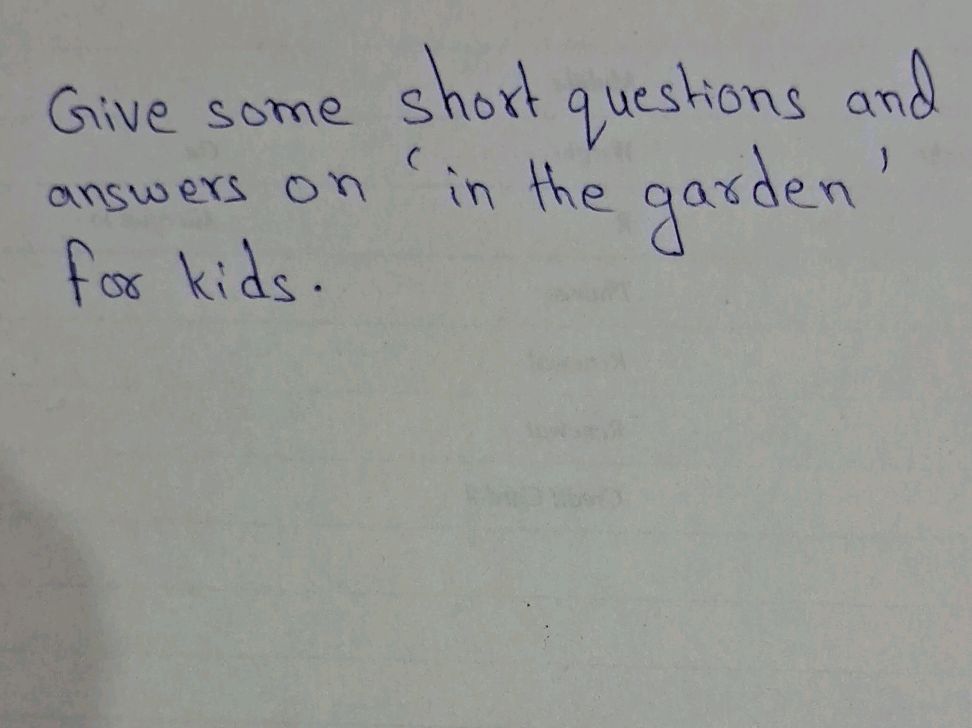 Give some short questions and
answers on 'in the garden'
for kids.